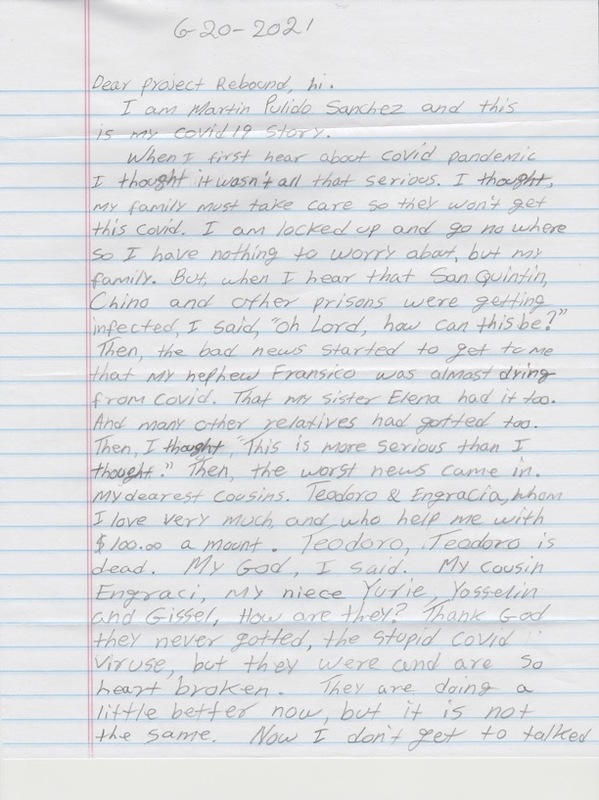 6-20-2021
Dear Project Rebound, hi.
I am Martin Pulido Sanchez and this
is my covid 19 story.
When I first hear about covid pandemic
I thought it wasn't all that serious. I thought,
my family must take care so they won't get
this covid. I am locked up and go no where
so I have nothing to worry about, but my
family. But, when I hear that San Quintin,
Chino and other prisons were getting
infected, I said, "oh Lord, how can this be?"
Then, the bad news started to get to me
that my nephew Fransico was almost dying
from covid. That my sister Elena had it too.
And many other relatives had gotted too.
Then, I thought, "This is more serious than I
thought." Then, the worst news came in.
My dearest cousins. Teodoro & Engracia, whom
I love very much, and who help me with
$100.00 a mount. Teodoro, Teodoro is
dead. My God, I said. My cousin
Engraci, my niece Yurie, Yosselin
and Gissel, How are they? Thank God
they never gotted, the stupid covid
viruse, but they were and are so
heart broken. They are doing a
little better now, but it is not
the same. Now I don't get to talked